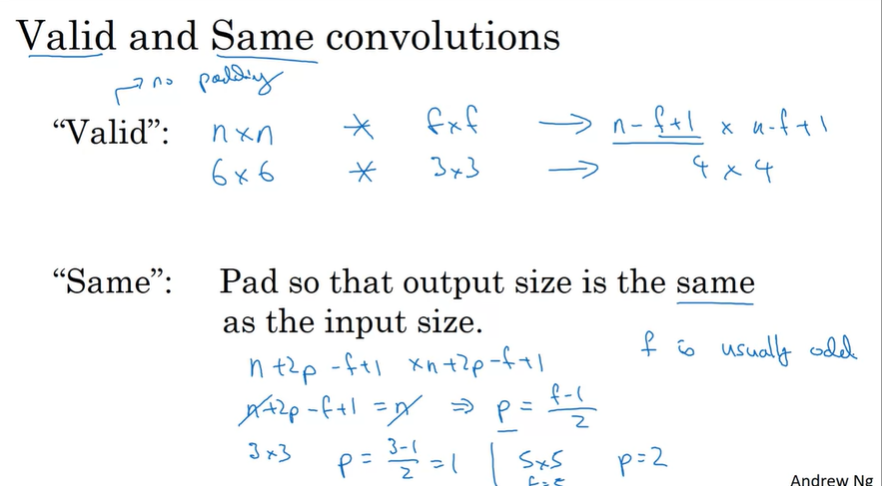 Valid and Same convolutions
→ no padding
“Valid”: n×n * f×f → n-f+1 × n-f+1
6×6 * 3×3 → 4 × 4
“Same”: Pad so that output size is the same
as the input size.
n+2p-f+1 ×n+2p-f+1 f is usually odd
n+2p-f+1 = n ⇒ p = f-1/2
3×3 p = 3-1/2 = 1 | 5×5 p=2
f=5
Andrew Ng